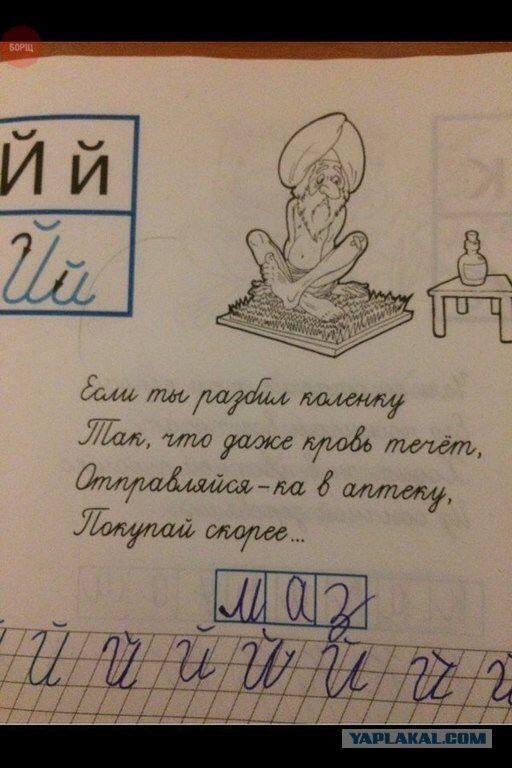 БОРЩ
Й й
Й й
Если ты разбил коленку
Так, что даже кровь течёт,
Отправляйся-ка в аптеку,
Покупай скорее...
маз
Й Й Й Й Й Й Й Й
YAPLAKAL.COM